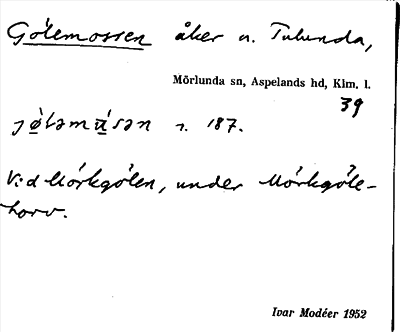 Gölemossen åker u. Tulunda,
Mörlunda sn, Aspelands hd, Klm. l.
39
jø̀ləmùsən s. 187.
Vid Mörkgölen, under Mörkgöle-
torv.
Ivar Modéer 1952